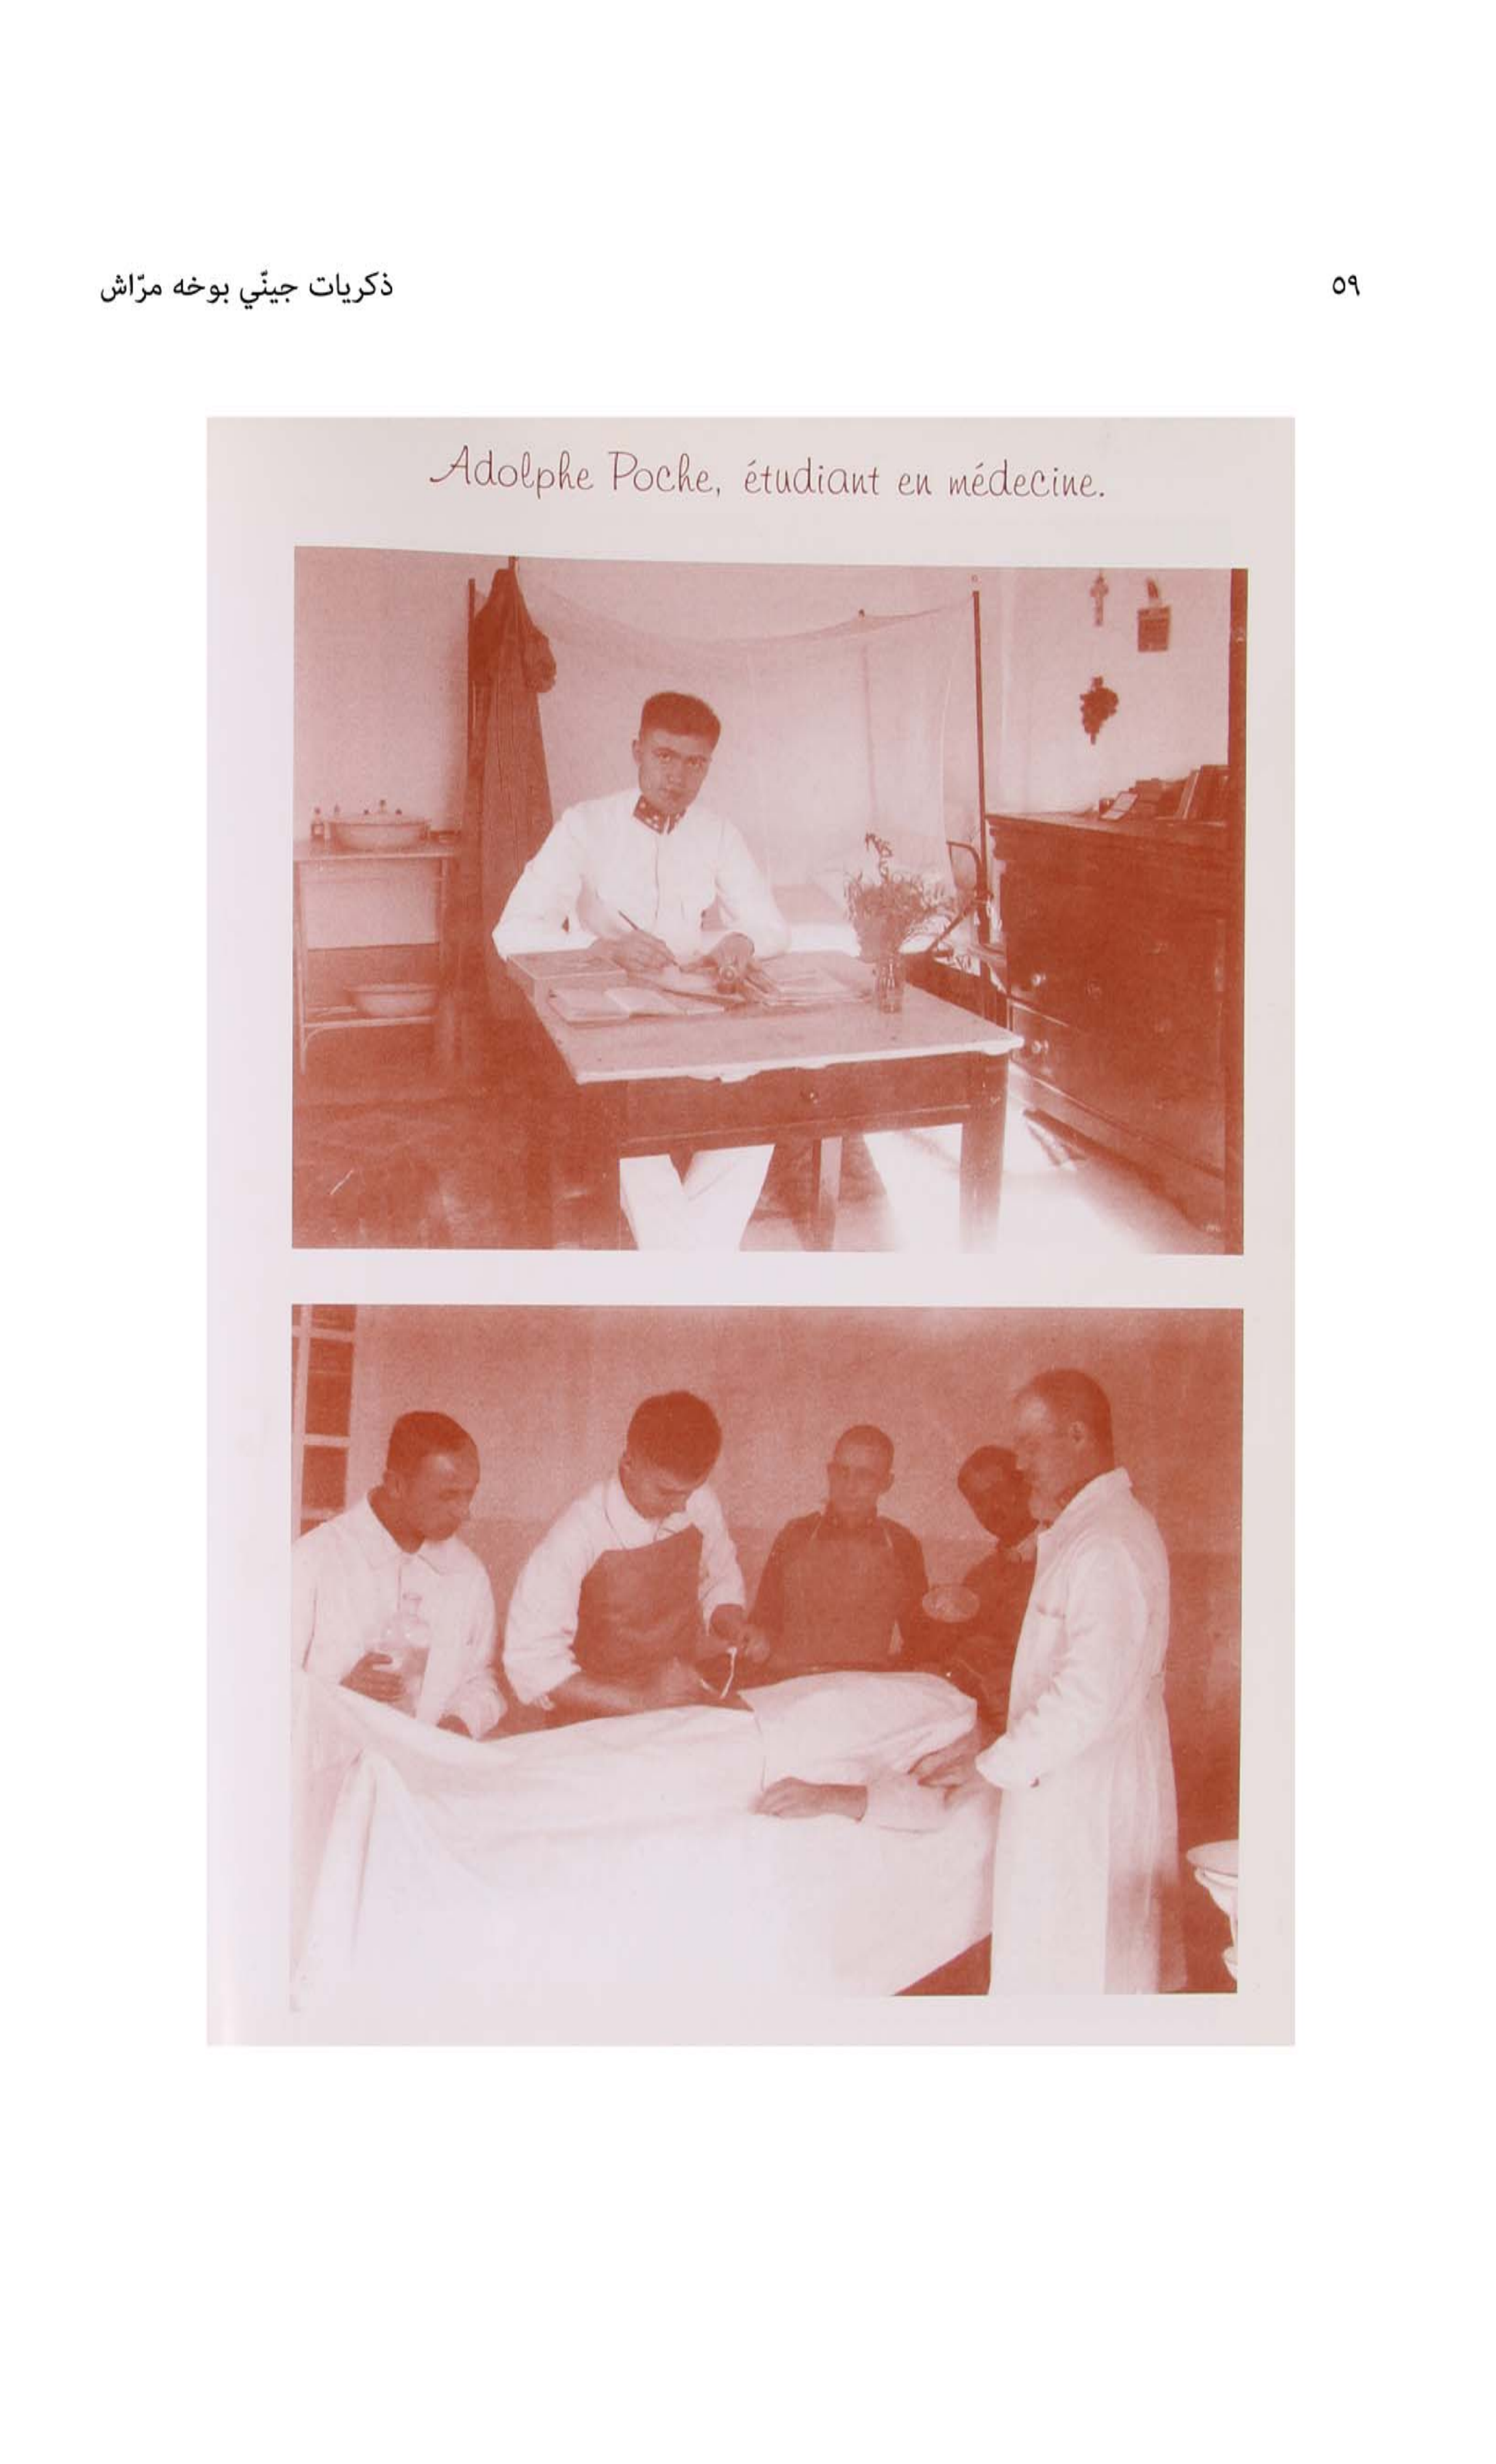 ذكريات جينّي بوخه مرّاش
٥٩
Adolphe Poche, étudiant en médecine.